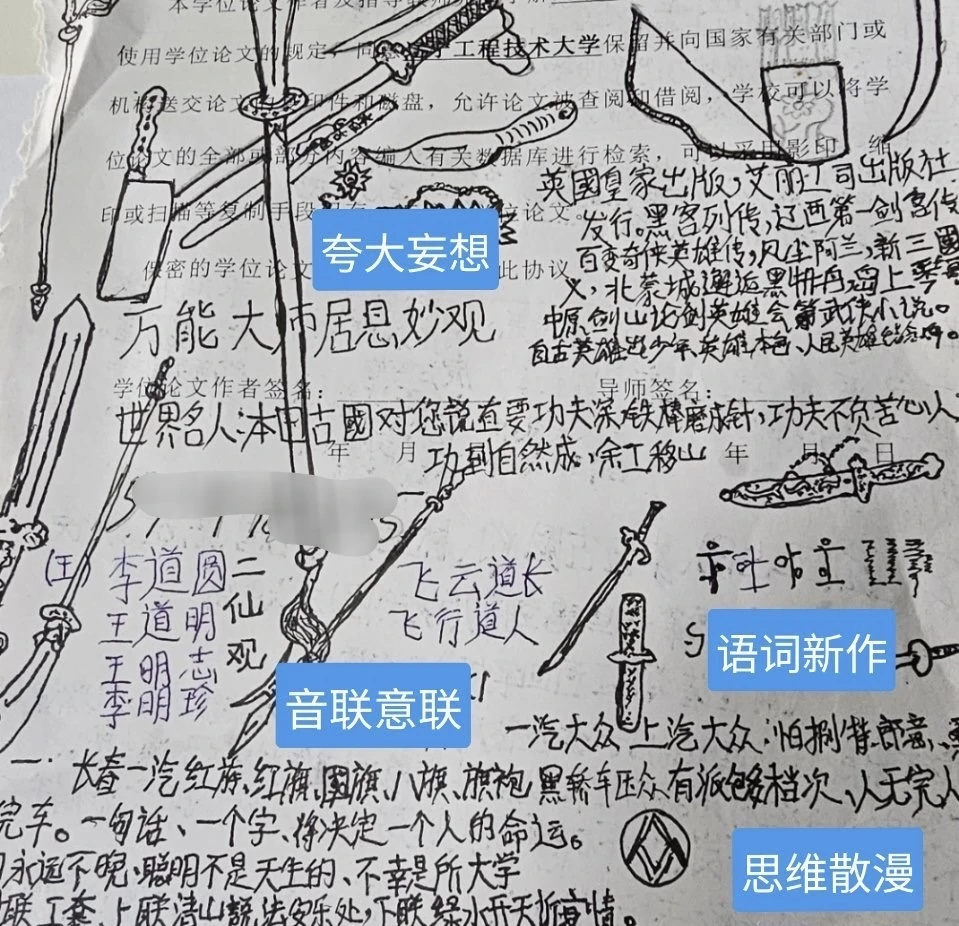 使用学位论文的规定，同意 工程技术大学保留并向国家有关部门或
机构送交论文 印件和磁盘，允许论文被查阅和借阅，学校可以将学
位论文的全部或部分内容编入有关数据库进行检索，可以采用影印、缩
印或扫描等复制手段 论文。
英國皇家出版，艾丽 司出版社
发行。黑客列传，辽西第一剑客传
百变奇侠英雄传，风尘阿兰，新三國
义，北蒙城邂逅黑牡丹，岛上
夸大妄想
保密的学位论文 此协议
中原剑山论剑英雄会 武侠小说。
万能大师居思妙观
自古英雄出少年、英雄本色、人民英雄
学位论文作者签名： 导师签名：
世界名人：本田古國对您说道要功夫深铁棒磨成针，功夫不负苦心人
年 月 年 月 日
功到自然成，余工移山
李道圆
王道明
王明志
李明珍
二仙观
飞云道长
飞行道人
语词新作
音联意联
一汽大众 上汽大众
一． 长春一汽红旗、红旗、國旗、八旗、旗袍 黑轿车 众有派 够档次、人无完人
完车。一句话、一个字、将决定一个人的命运。
永远不晚，聪明不是天生的、不幸是所大学
思维散漫
上联清山 法安乐处，下联绿水开天 情。